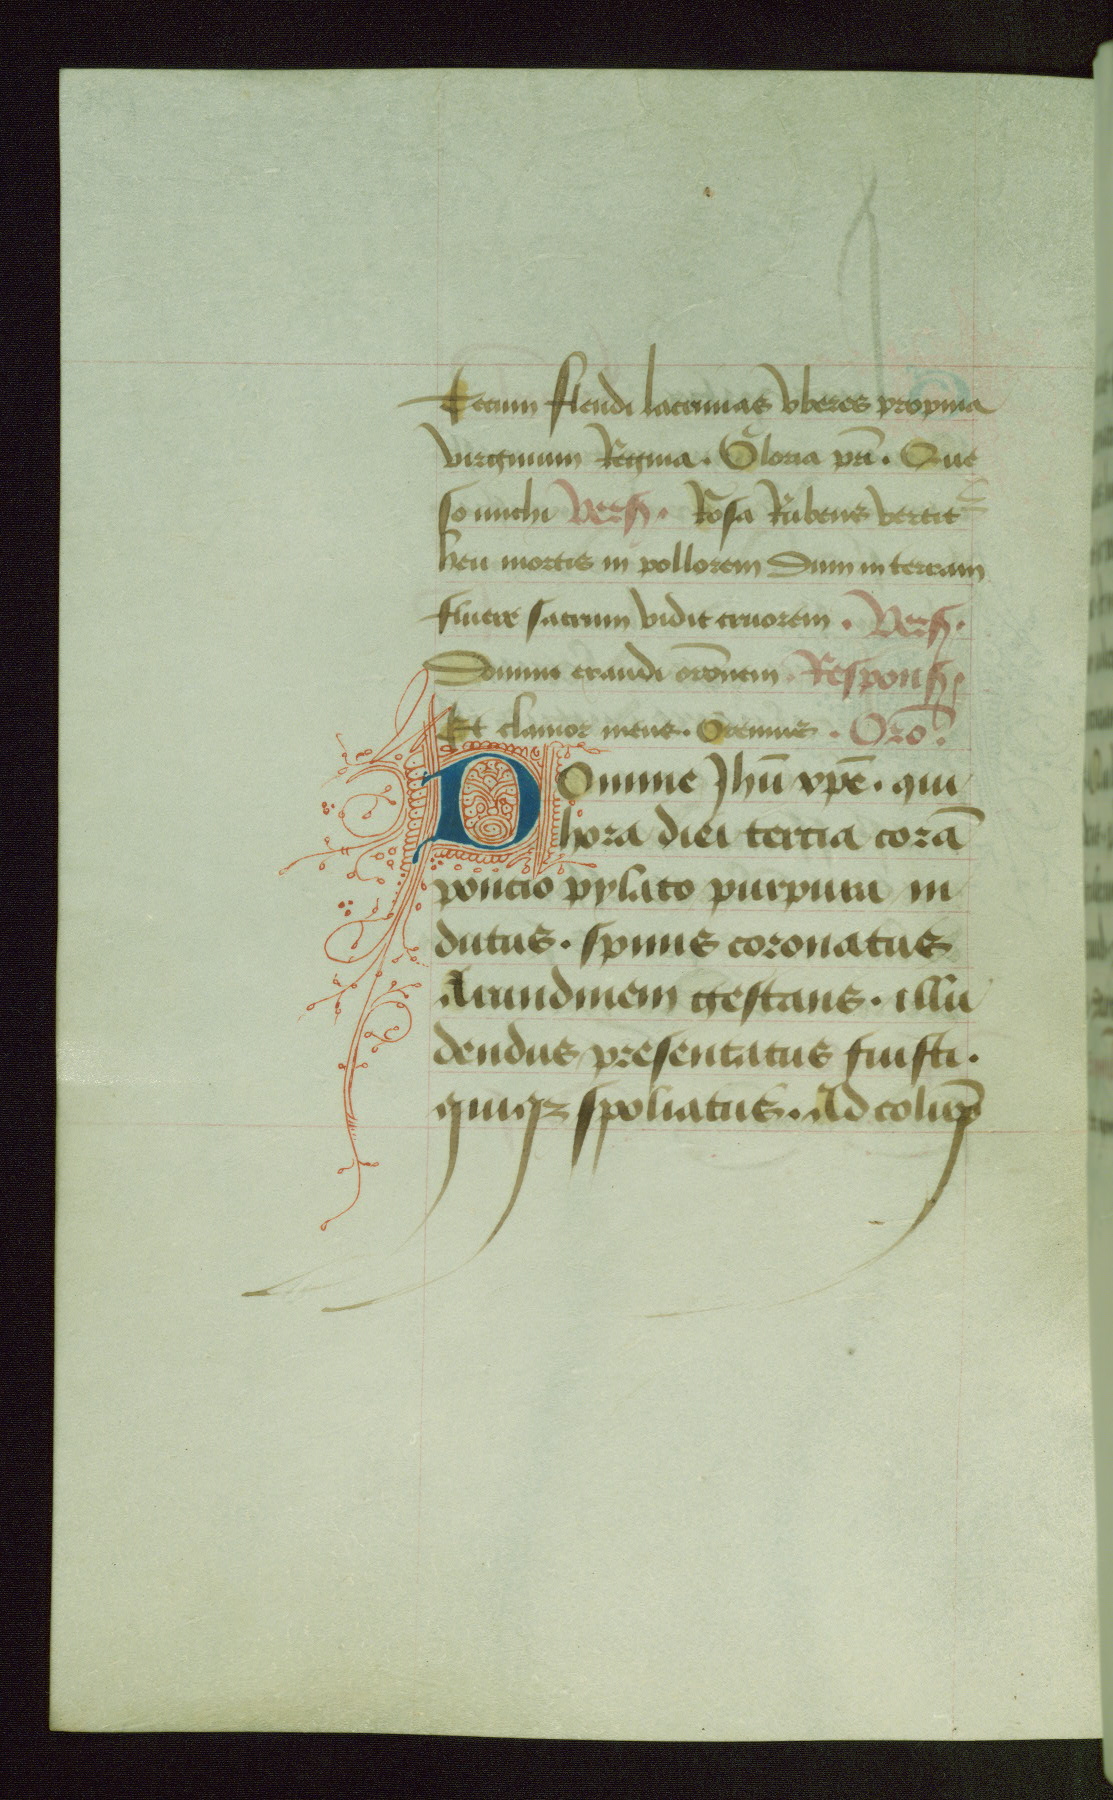 Tecum flendi lacrimas vberes propina
virginum Regina. Gloria pri. Que
so michi Vers. Rosa Rubens vertit
heu mortis in pollorem Dum in terram
fluere sacrum vidit cruorem. Vers.
Domine exaudi oronem. Respons.
Et clamor meus. Oremus. Oro.
Domine Jhu xpe. qui
hora diei tercia corā
poncio pylato purpura in
dutus. spinis coronatus
Arundinem gestans. illu
dendus presentatus fuisti.
quiqz spoliatus. Ad colūp